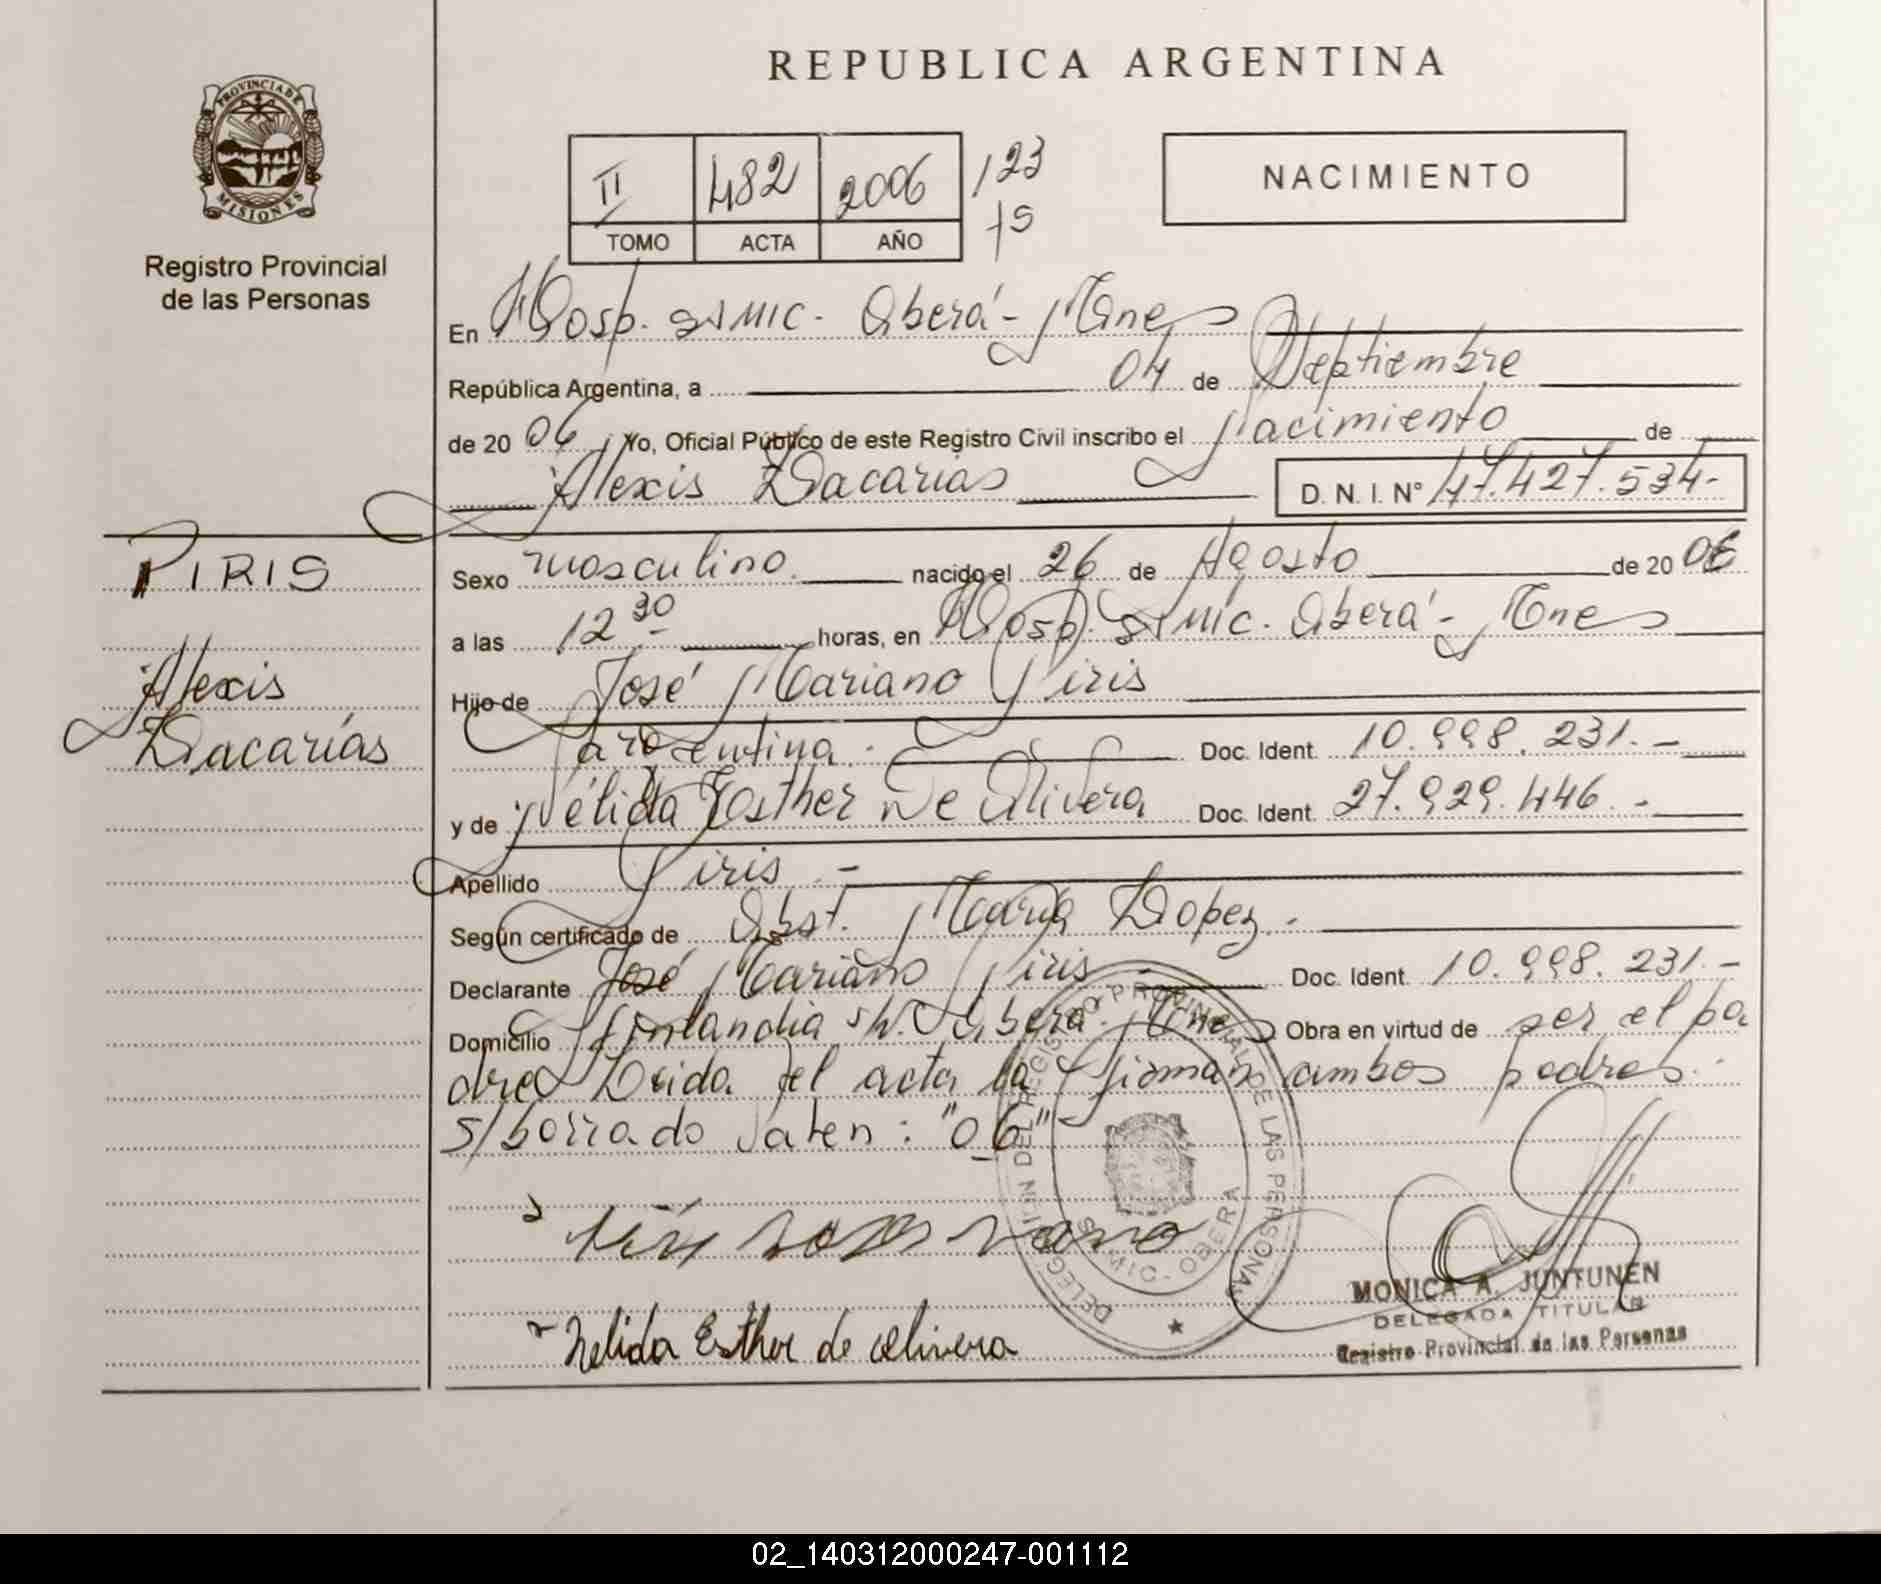 REPUBLICA ARGENTINA
PROVINCIA DE MISIONES
Registro Provincial
de las Personas
II 482 2006 123
TOMO ACTA AÑO 15
NACIMIENTO
En Hosp. SAMIC - Oberá - Mnes
República Argentina, a 04 de Septiembre
de 20 06 Yo, Oficial Público de este Registro Civil inscribo el Nacimiento de
Alexis Zacarias D. N. I. N° 47.427.534.-
PIRIS
Alexis
Zacarías
Sexo masculino nacido el 26 de Agosto de 20 06
a las 12 30 horas, en Hosp. SAMIC. Oberá - Mnes
Hijo de José Mariano Piris
argentina. Doc. Ident. 10.998.231.-
y de Nélida Esther De Olivera Doc. Ident. 27.929.446.-
Apellido Piris -
Según certificado de Obst. María Lopez.
Declarante José Mariano Piris - Doc. Ident. 10.998.231.-
Domicilio Finlandia s/n. Oberá. Mnes Obra en virtud de ser el pa
dre Leida el acta la firman ambos padres.
s/borrado Valen: "06"
DELEGACION DEL REGISTRO PROVINCIAL DE LAS PERSONAS
SAMIC - OBERA
Nelida Esther de Olivera
MONICA A. JUNTUNEN
DELEGADA TITULAR
Registro Provincial de las Personas
02_140312000247-001112